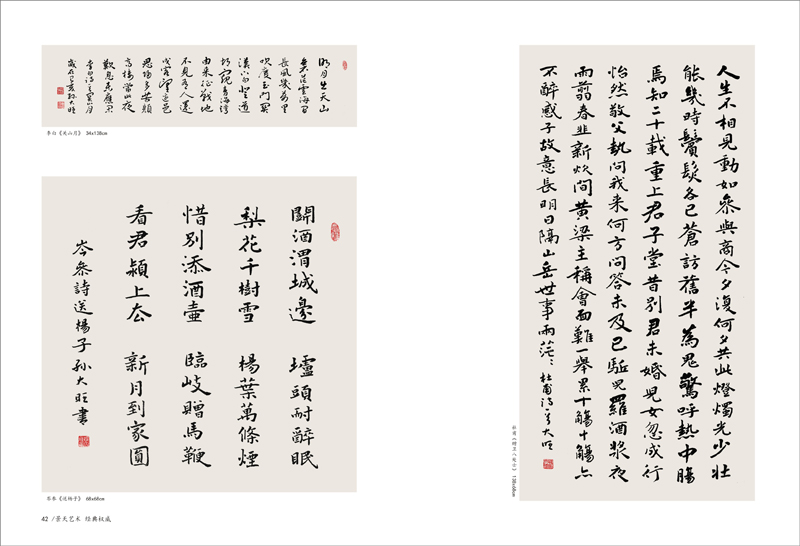 明月出天山
蒼茫雲海間
長風幾萬里
吹度玉門關
漢下白登道
胡窺青海灣
由來征戰地
不見有人還
戍客望邊邑
思歸多苦顏
高樓當此夜
歎息未應閑
李白詩關山月
歲在己亥孙大旺
李白《关山月》 34x138cm
鬭酒渭城邊 壚頭耐醉眠
梨花千樹雪 楊葉萬條煙
惜別添酒壺 臨岐贈馬鞭
看君潁上去 新月到家圓
岑參詩送楊子孙大旺書
岑参《送杨子》 68x68cm
人生不相見動如參與商今夕復何夕共此燈燭光少壯
能幾時鬢髮各已蒼訪舊半為鬼驚呼熱中腸
焉知二十載重上君子堂昔別君未婚兒女忽成行
怡然敬父執問我来何方問答未及已驅兒羅酒漿夜
雨翦春韭新炊間黃梁主稱會面難一舉累十觴十觴亦
不醉感子故意長明日隔山岳世事兩茫〻杜甫詩 大旺
杜甫《赠卫八处士》 138x68cm
42 /景天艺术 经典权威